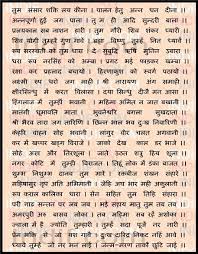 तुम संसार शक्ति लय कीना । पालन हेतु अन्न धन दीना ।।
अन्नपूर्णा हुई जग पाला । तुम ही आदि सुन्दरी बाला ।।
प्रलयकाल सब नाशन हारी । तुम गौरी शिव शंकर प्यारी ।।
शिव योगी तुम्हरे गुण गावें । ब्रह्मा विष्णु तुम्हें नित ध्यावें ।।
रूप सरस्वती को तुम धारा । दे सुबुद्धि ऋषि मुनिन उबारा ।।
धरा रूप नरसिंह को अम्बा । प्रगट भई फाड़कर खम्बा ।।
रक्षा कर प्रहलाद बचायो । हिरणाकुश को स्वर्ग पठायो ।।
श्री रूप धरो जग माहीं । श्री नारायण अंग समाहीं ।।
क्षीरसिन्धु में करत विलासा । दयासिन्धु दीजै मन आसा ।।
हिंगलाज में तुम्हीं भवानी । महिमा अमित न जात बखानी ।।
मातंगी धूमावति माता । भुवनेश्वरि बगला सुखदाता ।।
श्री भैरव तारा जग तारिणि । छिन्न भाल भव दुःख निवारिणी ।।
केहरि वाहन सोह भवानी । लांगुर वीर चलत अगवानी ।।
कर में खप्पर खड्ग विराजे । जाको देख काल डर भाजे ।।
सोहे अस्त्र और त्रिशूला । जाते उठत शत्रु हिय शूला ।।
नगर कोटि में तुम्हीं विराजत । तिहूं लोक में डंका बाजत ।।
शुम्भ निशुम्भ दानव तुम मारे । रक्तबीज शंखन संहारे ।।
महिषासुर नृप अति अभिमानी । जेहि अघ भार मही अकुलानी ।।
रूप कराल कालिका धारा । सेन सहित तुम तिहि संहारा ।।
परी गाढ़ सन्तन पर जब जब । भई सहाय मातु तुम तब तब ।।
अमरपुरी अरु बासव लोका । तव महिमा सब रहें अशोका ।।
ज्वाला में है ज्योति तुम्हारी । तुम्हें सदा पूजें नर नारी ।।
प्रेम भक्ति से जो यश गावे । दुःख दारिद्र निकट नहिं आवे ।।
ध्यावे तुम्हें जो नर मन लाई । जन्म-मरण ताको छुटि जाई ।।